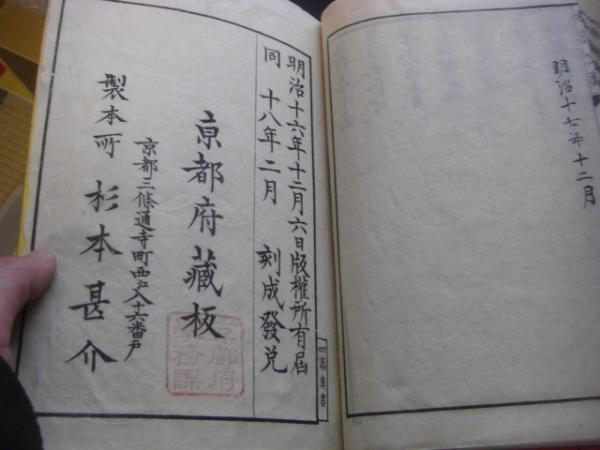 明治十七年十二月
明治十六年十二月六日版權所有屆
同 十八年二月 刻成發兌
京都府藏板
京都三條通寺町西入十六番戸
製本所 杉本甚介
京都府
務課
書